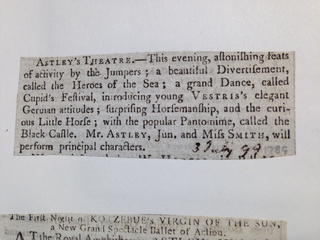 ASTLEY's THEATRE.—This evening, astonishing feats
of activity by the Jumpers; a beautiful Divertisement,
called the Heroes of the Sea; a grand Dance, called
Cupid's Festival, introducing young VESTRIS's elegant
German attitudes; surprising Horsemanship, and the curi-
ous Little Horse; with the popular Pantomime, called the
Black Castle. Mr. ASTLEY, Jun. and Miss SMITH, will
perform principal characters.
3 July 89 1789
The First Night of KOTZEBUE's VIRGIN OF THE SUN,
a New Grand Spectacle Ballet of Action.
AT the Royal Amphitheatre